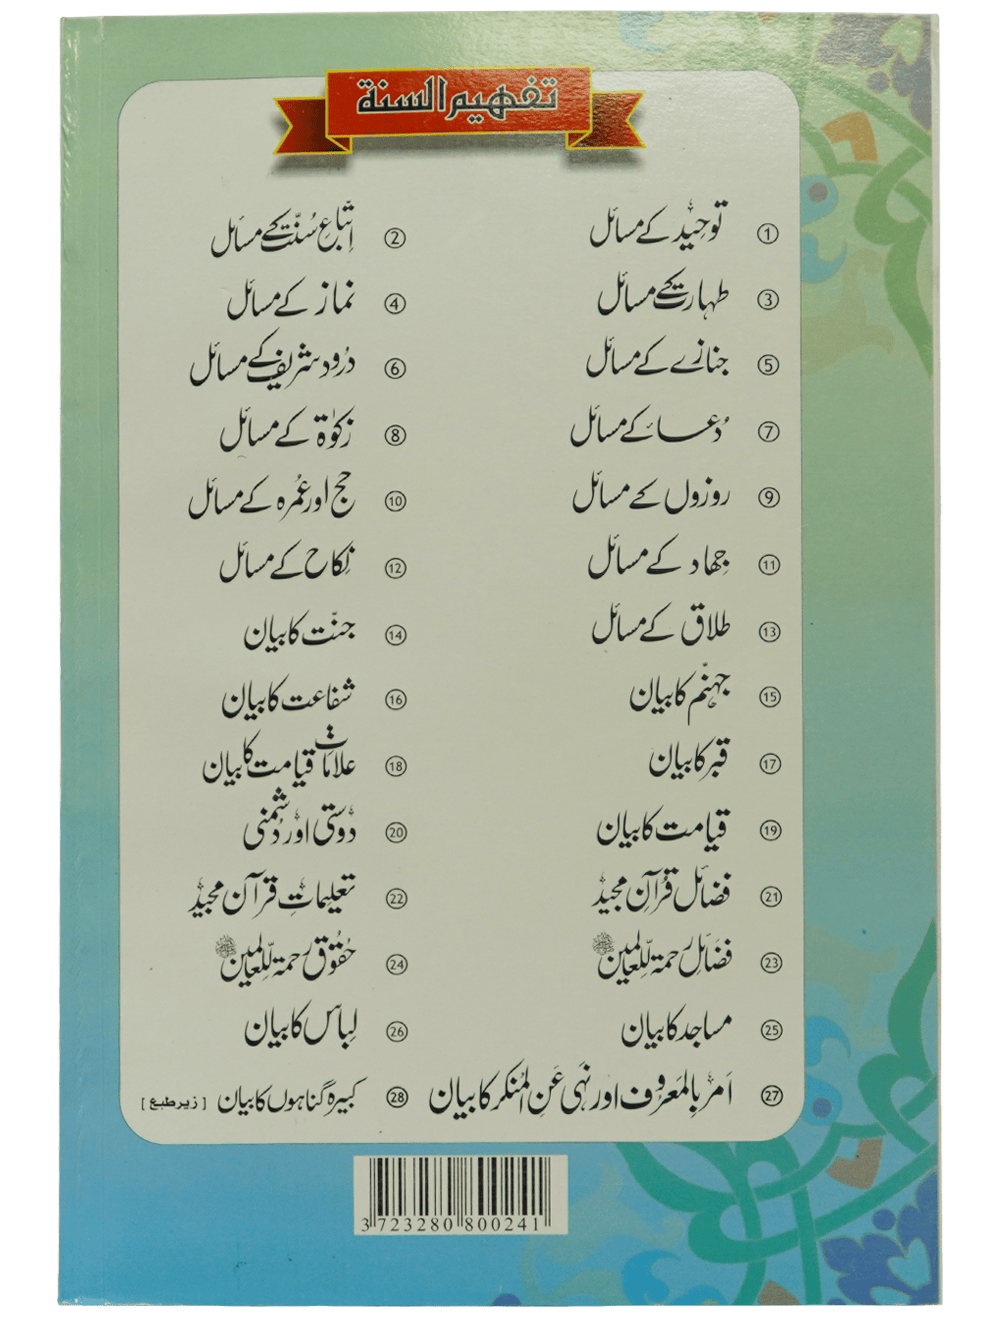 تفہیم السنۃ
① توحید کے مسائل ② اتباعِ سُنّت کے مسائل
③ طہارت کے مسائل ④ نماز کے مسائل
⑤ جنازے کے مسائل ⑥ دُرود شریف کے مسائل
⑦ دُعا کے مسائل ⑧ زکوٰۃ کے مسائل
⑨ روزوں کے مسائل ⑩ حج اور عُمرہ کے مسائل
⑪ جہاد کے مسائل ⑫ نِکاح کے مسائل
⑬ طلاق کے مسائل ⑭ جنّت کا بیان
⑮ جہنّم کا بیان ⑯ شفاعت کا بیان
⑰ قبر کا بیان ⑱ علاماتِ قیامت کا بیان
⑲ قیامت کا بیان ⑳ دوستی اور دُشمنی
㉑ فضائل قُرآنِ مجید ㉒ تعلیماتِ قرآن مجید
㉓ فضائل رحمۃ لِّلعالمین ﷺ ㉔ حُقُوق رحمۃ لِّلعالمین ﷺ
㉕ مساجد کا بیان ㉖ لباس کا بیان
㉗ اَمر بِالمَعرُوف اور نہی عَنِ المُنکر کا بیان ㉘ کبیرہ گناہوں کا بیان [زیر طبع]
3 723280 800241